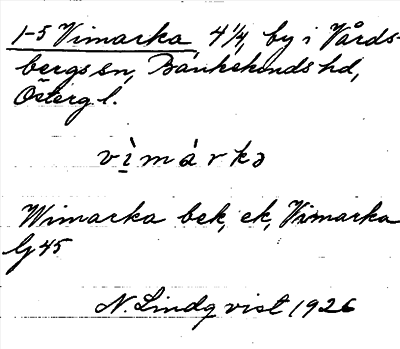 1-5 Vimarka, 4 1/4, by i Vårds-
bergs sn, Bankekinds hd,
Österg l.
vìmárkə
Wimarka bek, ek, Vimarka
G 45
N. Lindqvist 1926